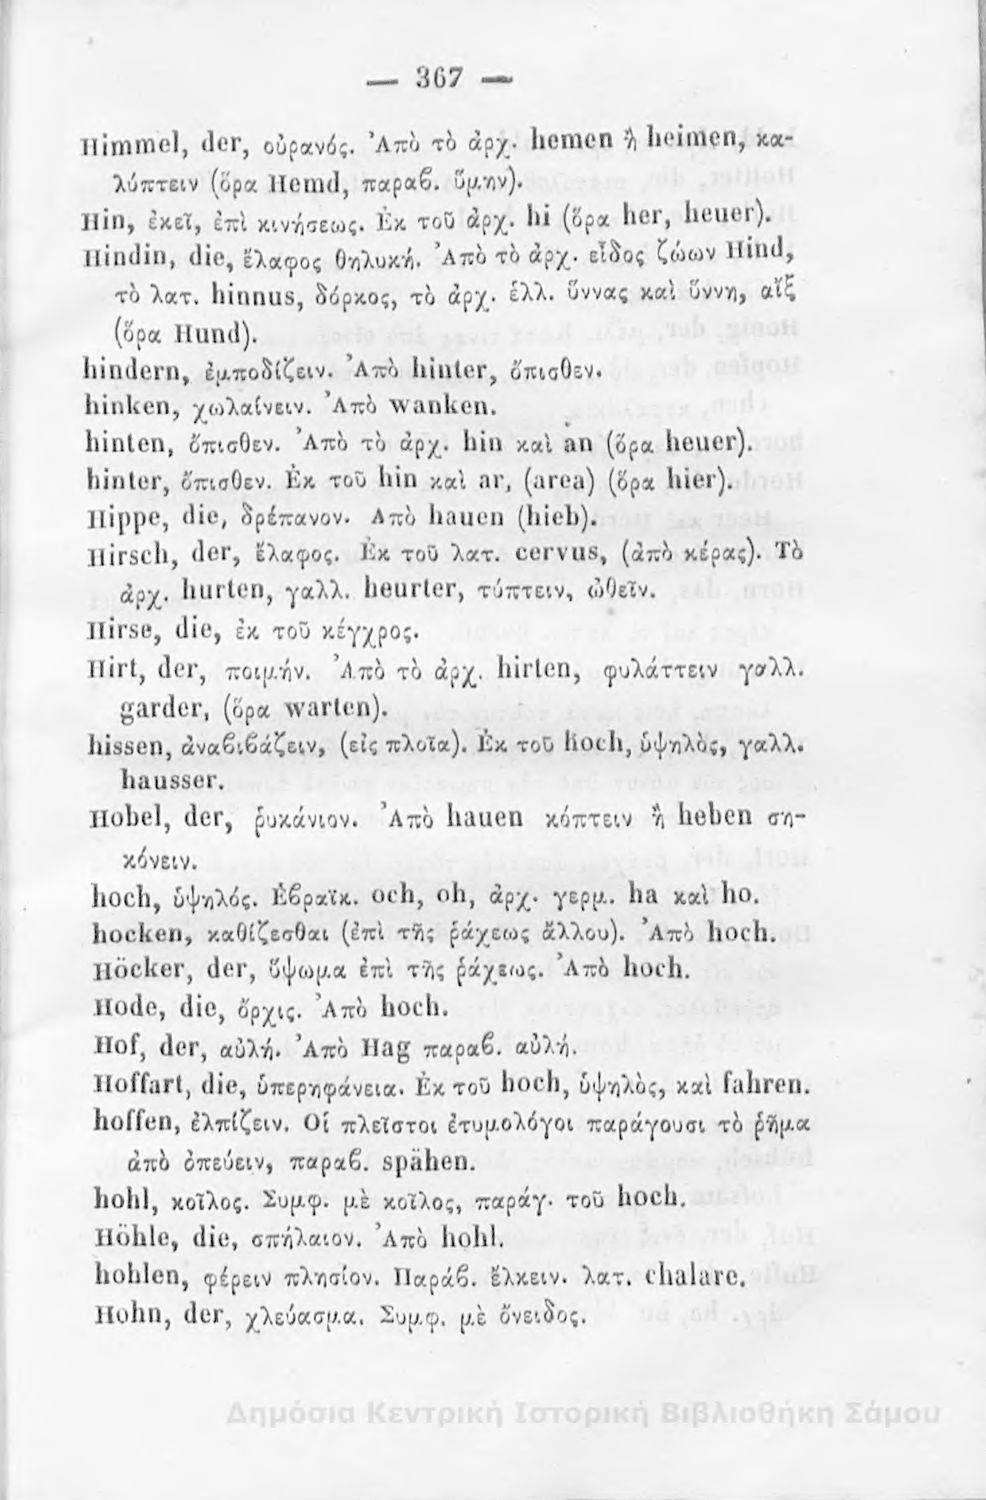 — 367 —
Himmel, der, οὐρανός. Ἀπὸ τὸ ἀρχ. hemen ἢ heimen, κα-
λύπτειν (ὅρα Hemd, παραβ. ὕμην).
Hin, ἐκεῖ, ἐπὶ κινήσεως. Ἐκ τοῦ ἀρχ. hi (ὅρα her, heuer).
Hindin, die, ἔλαφος θηλυκή. Ἀπὸ τὸ ἀρχ. εἶδος ζώων Hind,
τὸ λατ. hinnus, δόρκος, τὸ ἀρχ. ἑλλ. ὕννας καὶ ὕννη, αἴξ
(ὅρα Hund).
hindern, ἐμποδίζειν. Ἀπὸ hinter, ὄπισθεν.
hinken, χωλαίνειν. Ἀπὸ wanken.
hinten, ὄπισθεν. Ἀπὸ τὸ ἀρχ. hin καὶ an (ὅρα heuer).
hinter, ὄπισθεν. Ἐκ τοῦ hin καὶ ar, (area) (ὅρα hier).
Hippe, die, δρέπανον. Ἀπὸ hauen (hieb).
Hirsch, der, ἔλαφος. Ἐκ τοῦ λατ. cervus, (ἀπὸ κέρας). Τὸ
ἀρχ. hurten, γαλλ. heurter, τύπτειν, ὠθεῖν.
Hirse, die, ἐκ τοῦ κέγχρος.
Hirt, der, ποιμήν. Ἀπὸ τὸ ἀρχ. hirten, φυλάττειν γαλλ.
garder, (ὅρα warten).
hissen, ἀναβιβάζειν, (εἰς πλοῖα). Ἐκ τοῦ hoch, ὑψηλὸς, γαλλ.
hausser.
Hobel, der, ῥυκάνιον. Ἀπὸ hauen κόπτειν ἢ heben ση-
κόνειν.
hoch, ὑψηλός. Ἑβραϊκ. och, oh, ἀρχ. γερμ. ha καὶ ho.
hocken, καθίζεσθαι (ἐπὶ τῆς ῥάχεως ἄλλου). Ἀπὸ hoch.
Höcker, der, ὕψωμα ἐπὶ τῆς ῥάχεως. Ἀπὸ hoch.
Hode, die, ὄρχις. Ἀπὸ hoch.
Hof, der, αὐλή. Ἀπὸ Hag παραβ. αὐλή.
Hoffart, die, ὑπερηφάνεια. Ἐκ τοῦ hoch, ὑψηλὸς, καὶ fahren.
hoffen, ἐλπίζειν. Οἱ πλεῖστοι ἐτυμολόγοι παράγουσι τὸ ῥῆμα
ἀπὸ ὀπεύειν, παραβ. spähen.
hohl, κοῖλος. Συμφ. μὲ κοῖλος, παράγ. τοῦ hoch.
Höhle, die, σπήλαιον. Ἀπὸ hohl.
hohlen, φέρειν πλησίον. Παράβ. ἕλκειν. λατ. chalare.
Hohn, der, χλεύασμα. Συμφ. μὲ ὄνειδος.
Δημόσια Κεντρική Ιστορική Βιβλιοθήκη Σάμου